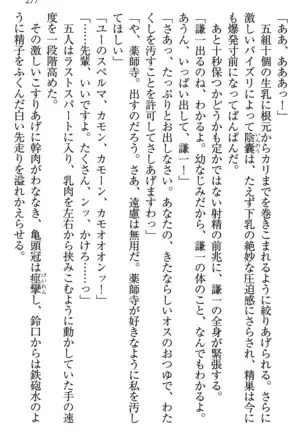 277
「ああ、あああっ！」
五組十個の生乳に根元からカリまでを巻きこまれるように絞りあげられる。さらに、
激しいパイズリによって陰嚢は、たえず下乳の絶妙な圧迫感にさらされ、精巣は今に
も爆発寸前になってぱんぱんだ。
あと十秒保つかどうかも定かではない射精の前兆に、謙一の全身が緊張する。
「謙一出るのね、わかるわ。幼なじみだから、謙一の体のこと、なんでもわかっちゃ
う、いっぱい出して、謙一！」
「さあっ、たっぷりとお出しなさい。あなたの、きたならしいオスのおつゆで、わた
くしを汚すことを許可してさしあげますわっ」
「や、薬師寺。出すのだろう。さあ、遠慮は無用だ。薬師寺が好きなように私を汚し
てほしい」
「ユーのスペルマ、カモン、カモーン、カモオオオンッ！」
「……先輩、いいですよ。たくさん、ンッ、かけろ……っ」
五人はラストスパートに入り、乳肉を左右から挟みこむように動かしていた手の速
度を一段階高めた。
その激しいこすりあげに幹肉がわななき、亀頭冠は痙攣し、鈴口からは鉄砲水のよ
うに精子をふくんだ白い先走りを溢れかえらせる。